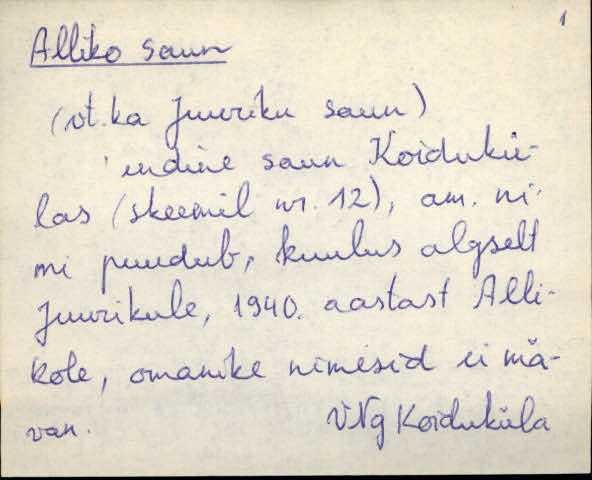 1
Alliko saun
(vt. ka Juuriku saun)
'endine saun Koidukü-
las (skeemil nr. 12), am. ni-
mi puudub, kuulus algselt
Juurikule, 1940. aastast Alli-
kole, omanike nimesid ei mä-
van.
VNg Koiduküla